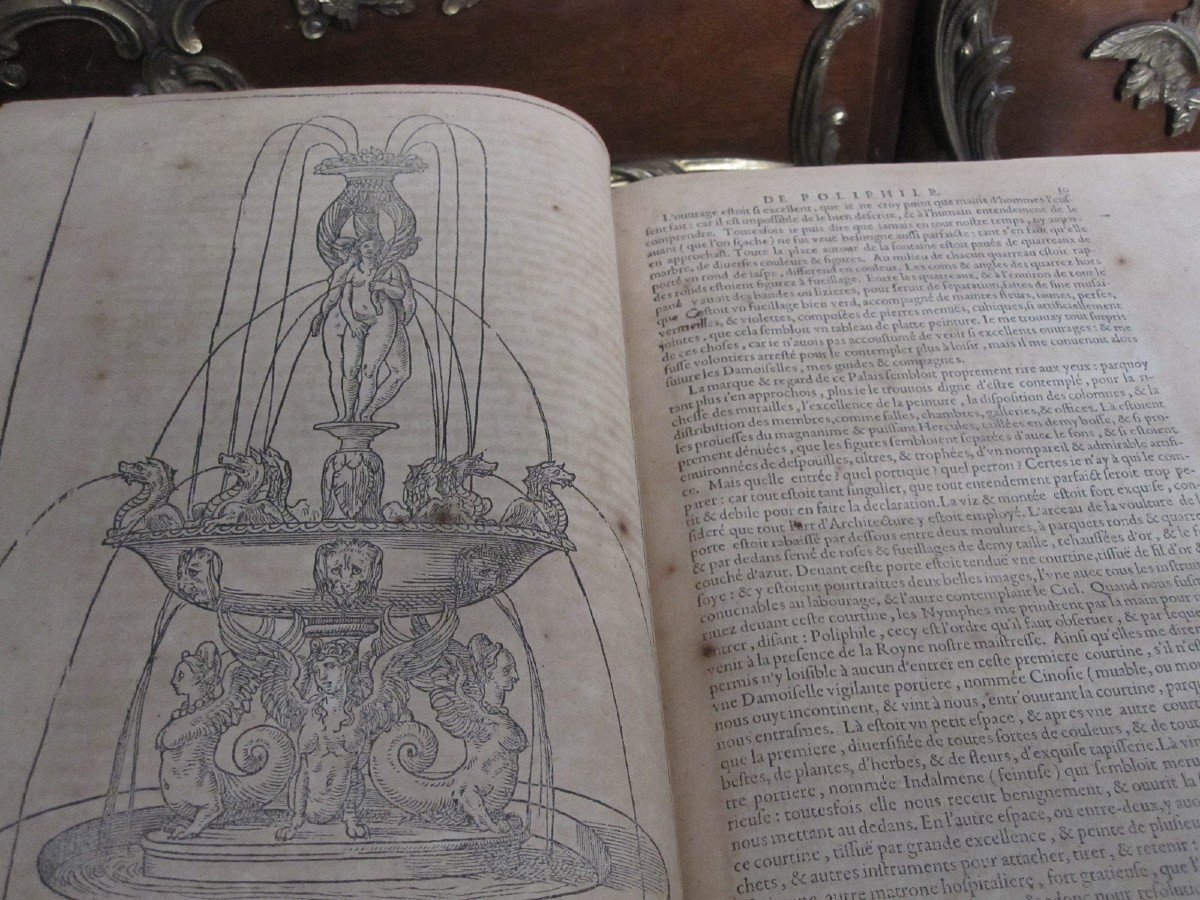 DE POLIPHILE.
L'ouurage eſtoit ſi excellent, que ie ne croy point que mains d'hommes l'euſ-
ſent faict: car il eſt impoſsible de le bien deſcrire, & à l'humain entendement de le
comprendre. Toutesfois ie puis dire que iamais en tout noſtre temps, ny aupar-
auant (que l'on ſçache) ne fut veuë beſongne auſsi parfaicte: tant s'en faut qu'elle
en approchaſt. Toute la place autour de la fontaine eſtoit pauée de quarreaux de
marbre, de diuerſes couleurs & figures. Au milieu de chacun quarreau eſtoit rap
porté en rond de iaſpe, differend en couleur. Les coins & angles des quarrez hors
des ronds eſtoient figurez à fueillage. Entre les quarreaux, & à l'enuiron de tout le
paué y auoit des bandes ou lizieres, pour ſeruir de ſeparation, faites de fine muſaï-
que Ceſtoit vn fueillage bien verd, accompagné de maintes fleurs, iaunes, perſes,
vermeilles, & violettes, compoſées de pierres menues, cubiques, ſi artificiellement
jointes, que cela ſembloit vn tableau de platte peinture. Ie me trouuay tout ſurpris
de ces choſes, car ie n'auois pas accouſtumé de veoir ſi excellents ouurages: & me
fuſſe volontiers arreſté pour le contempler plus à loiſir, mais il me conuenoit alors
ſuiure les Damoiſelles, mes guides & compagnes.
La marque & regard de ce Palais ſembloit proprement rire aux yeux: parquoy
tant plus i'en approchois, plus ie le trouuois digne d'eſtre contemplé, pour la ri-
cheſſe des murailles, l'excellence de la peinture, la diſpoſition des colomnes, & la
diſtribution des membres, comme ſalles, chambres, galleries, & offices. Là eſtoient
les proueſſes du magnanime & puiſſant Hercules, taillées en demy boſſe, & ſi pro-
prement dénuées, que les figures ſembloient ſeparées d'auec le fons, & ſi eſtoient
enuironnées de deſpouilles, tiltres, & trophées, d'vn nompareil & admirable artifi-
ce. Mais quelle entrée? quel portique? quel perron? Certes ie n'ay à qui le com-
parer: car tout eſtoit tant ſingulier, que tout entendement parfaict ſeroit trop pe-
tit & debile pour en faire la declaration. La viz & montée eſtoit fort exquiſe, con
ſideré que tout l'art d'Architecture y eſtoit employé. L'arceau de la voulture de
porte eſtoit rabaiſſé par deſſous entre deux moulures, à parquets ronds & quarr
& par dedans ſemé de roſes & fueillages de demy taille, rehauſſées d'or, & le f
couché d'azur. Deuant ceſte porte eſtoit tenduë vne courtine, tiſſuë de fil d'or &
ſoye: & y eſtoient pourtraittes deux belles images, l'vne auec tous les inſtrum
conuenables au labourage, & l'autre contemplant le Ciel. Quand nous fuſm
riuez deuant ceſte courtine, les Nymphes me prindrent par la main pour
entrer, diſant: Poliphile, cecy eſt l'ordre qu'il faut obſeruer, & par leque
venir à la preſence de la Royne noſtre maiſtreſſe. Ainſi qu'elles me dire
permis n'y loiſible à aucun d'entrer en ceſte premiere courtine, s'il n'eſ
vne Damoiſelle vigilante portiere, nommée Cinoſie (muable, ou mo
nous ouyt incontinent, & vint à nous, entr'ouurant la courtine, parqu
nous entraſmes. Là eſtoit vn petit eſpace, & apres vne autre court
que la premiere, diuerſifiée de toutes ſortes de couleurs, & de tou
beſtes, de plantes, d'herbes, & de fleurs, d'exquiſe tapiſſerie. Là vi
tre portiere, nommée Indalmene (feintiſe) qui ſembloit merue
rieuſe: toutesfois elle nous receut benignement, & ouurit la
nous mettant au dedans. En l'autre eſpace, ou entre-deux, y au
ce courtine, tiſſuë par grande excellence, & peinte de pluſieu
chets, & autres inſtruments pour attacher, tirer, & retenir:
autre matrone hoſpitaliere, fort gratieuſe, que